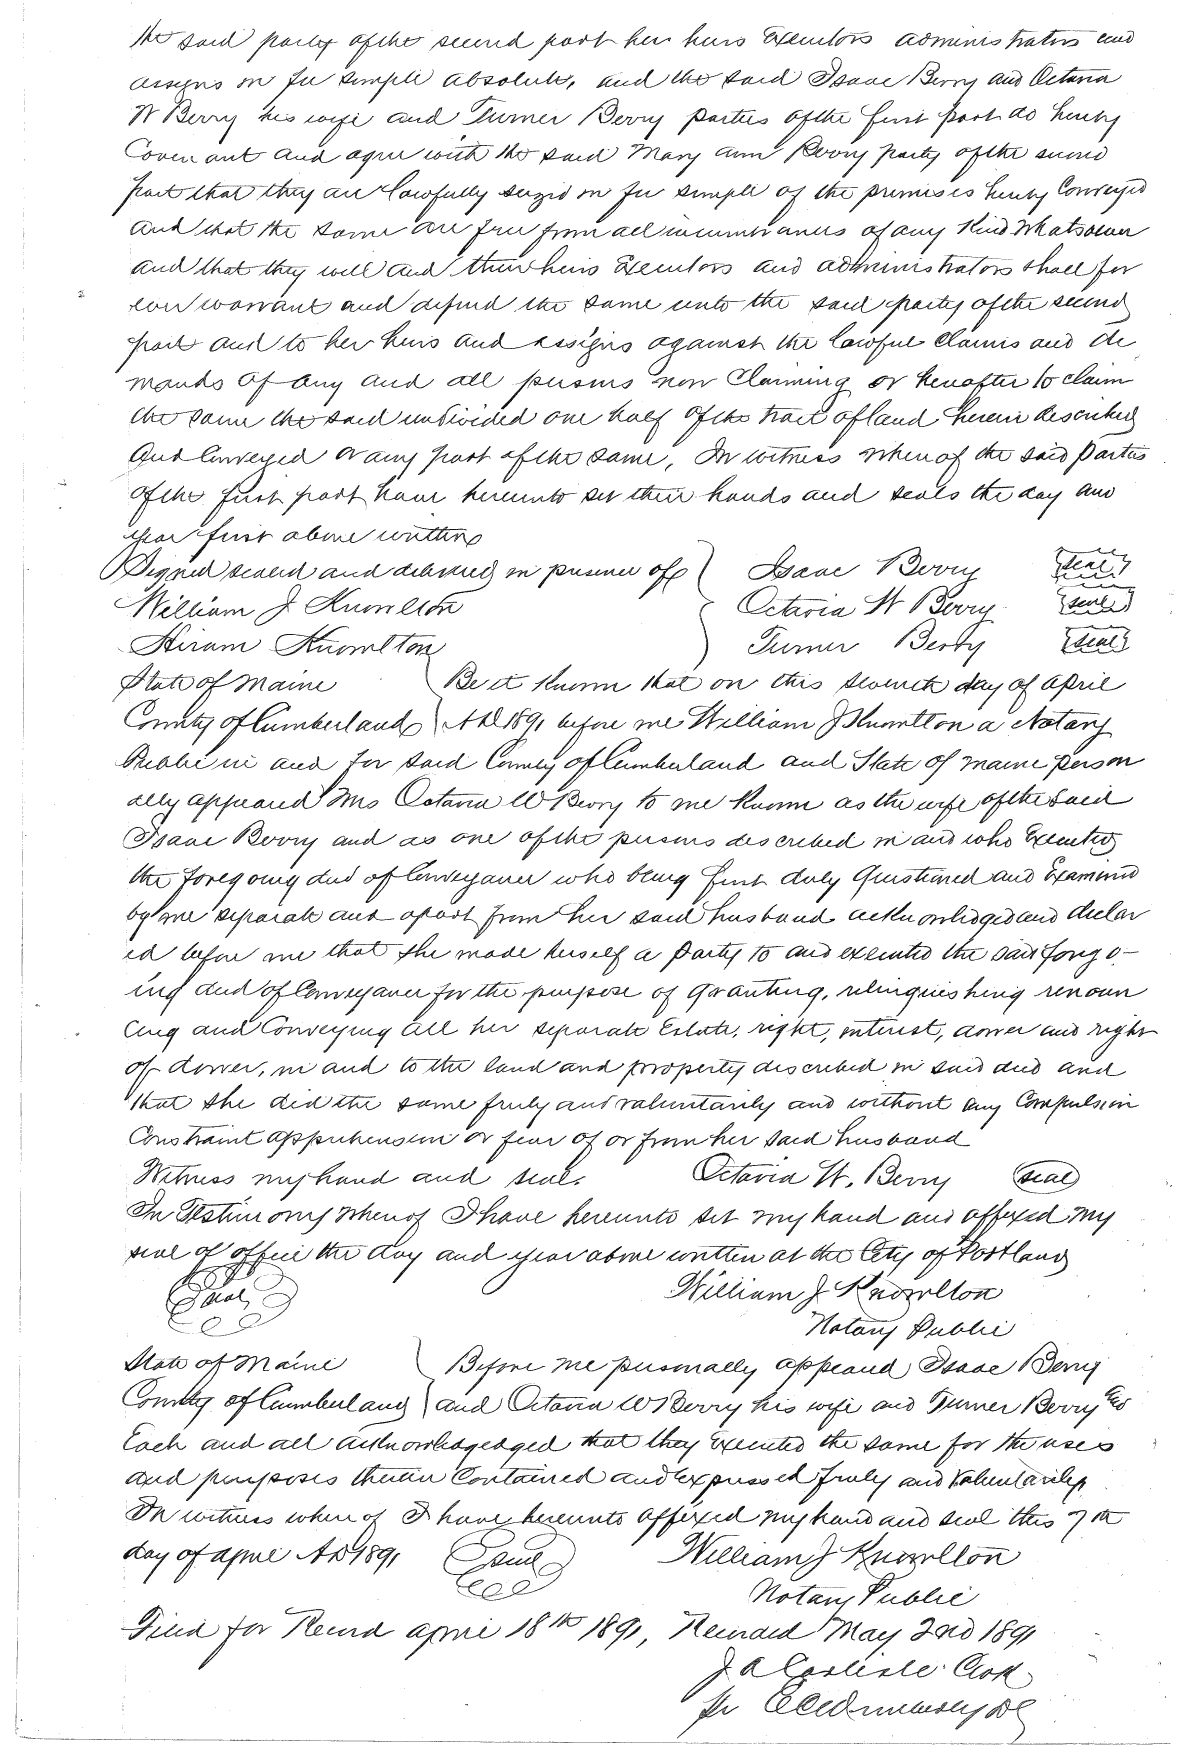 the said party of the second part her heirs Executors administrators and
assigns in fee simple absolute, and the said Isaac Berry and Octavia
W Berry his wife and Turner Berry parties of the first part do hereby
Covenant and agree with the said Mary ann Berry party of the second
part that they are lawfully seized in fee simple of the premises hereby Conveyed
and that the same are free from all incumbrances of any Kind whatsoever
and that they will and their heirs Executors and administrators shall for
ever warrant and defend the same unto the said party of the second
part and to her heirs and assigns against the lawful claims and de
mands of any and all persons now Claiming or hereafter to claim
the same the said undivided one half of the tract of land herein described
And Conveyed or any part of the same, In witness whereof the said Parties
of the first part have hereunto set their hands and seals the day and
year first above written
Signed sealed and delivered in presence of Isaac Berry seal
William J Knowlton Octavia W Berry seal
Hiram Knowlton Turner Berry seal
State of Maine Be it Known that on this seventh day of April
County of Cumberland A D 1891 before me William J Knowlton a Notary
Public in and for said County of Cumberland and State of Maine person
ally appeared Mrs Octavia W Berry to me Known as the wife of the said
Isaac Berry and as one of the persons described in and who Executed
the foregoing deed of Conveyance who being first duly Questioned and Examined
by me separate and apart from her said husband acknowledged and declar
ed before me that she made herself a party to and executed the said forego-
ing deed of Conveyance for the purpose of Granting, relinquishing renoun
cing and Conveying all her separate Estate, right, interest, dower and right
of dower, in and to the land and property described in said deed and
that she did the same freely and voluntarily and without any Compulsion
Constraint apprehension or fear of or from her said husband
Witness my hand and seal. Octavia W. Berry seal
In Testimony whereof I have hereunto set my hand and affixed my
seal of office the day and year above written at the City of Portland
Seal William J. Knowlton
Notary Public
State of Maine Before me personally appeared Isaac Berry
County of Cumberland and Octavia W Berry his wife and Turner Berry
Each and all acknowledgedged that they Executed the same for the uses
and purposes therein Contained and Expressed freely and voluntarily
In witness whereof I have hereunto affixed my hand and seal this 7th
day of april A D 1891 Seal William J Knowlton
Notary Public
Filed for Record april 18th 1891, Recorded May 2nd 1891
J A Carlisle Clerk